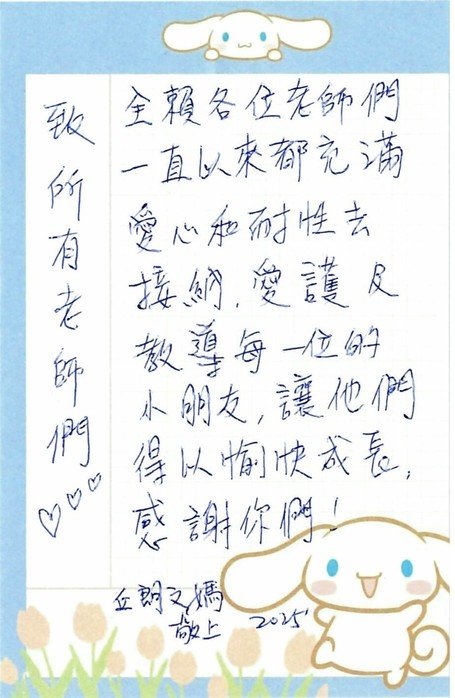 致所有老師們
全賴各位老師們
一直以來都充滿
愛心和耐性去
接納,愛護及
教導每一位的
小朋友,讓他們
得以愉快成長,
感謝你們!
丘朗文媽
敬上 2025